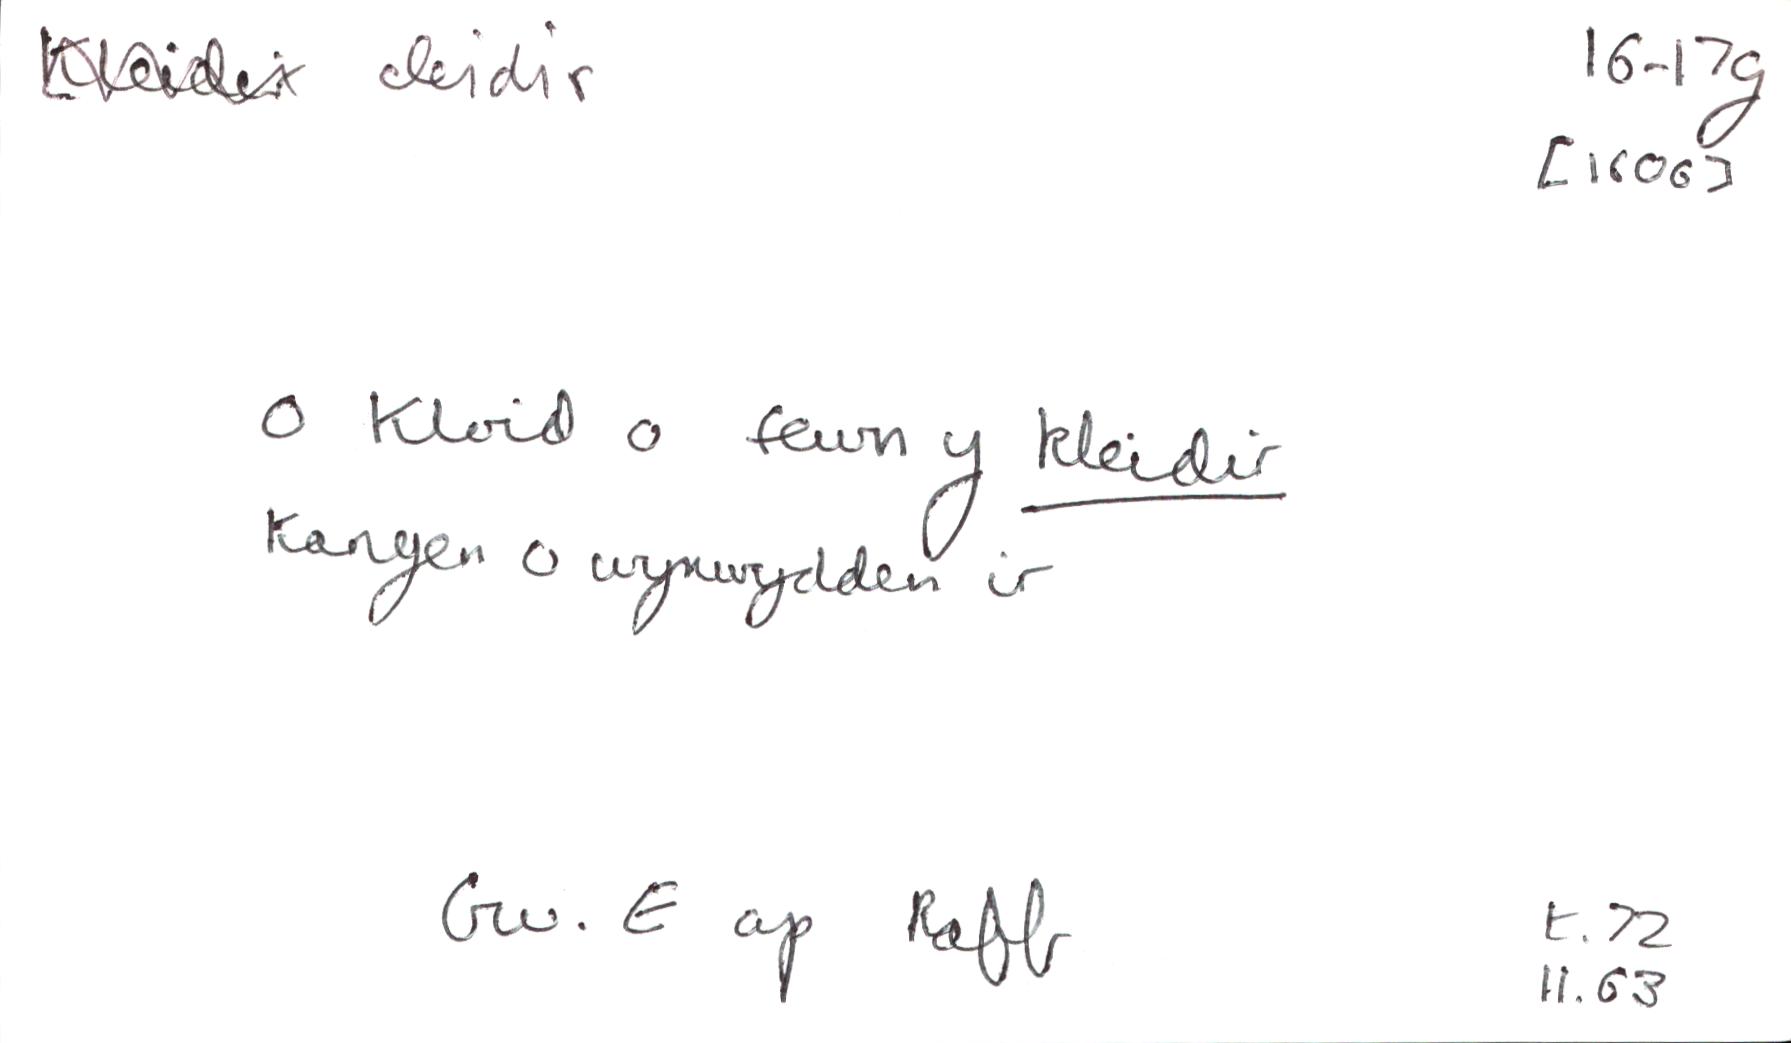 ~~Kleidir~~ cleidir 16-17g
[1606]
O Kloid o fewn y kleidir
Kangen o wynwydden ir
Gw. E ap Raff t.72
ll.63